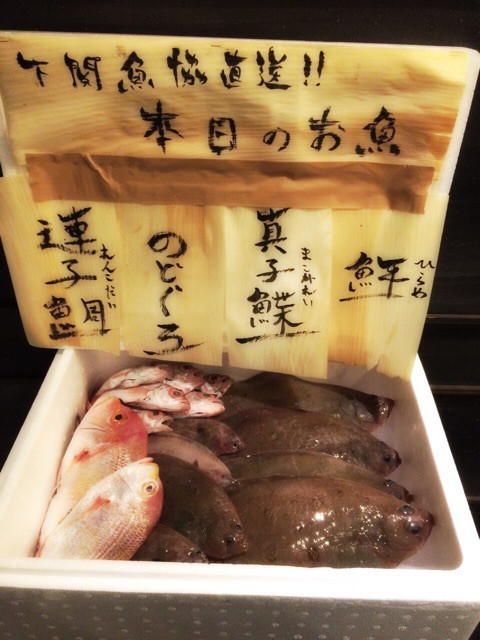 下関魚協直送!!
本日のお魚
鮃
ひらめ
真子鰈
まこがれい
のどぐろ
連子鯛
れんこだい